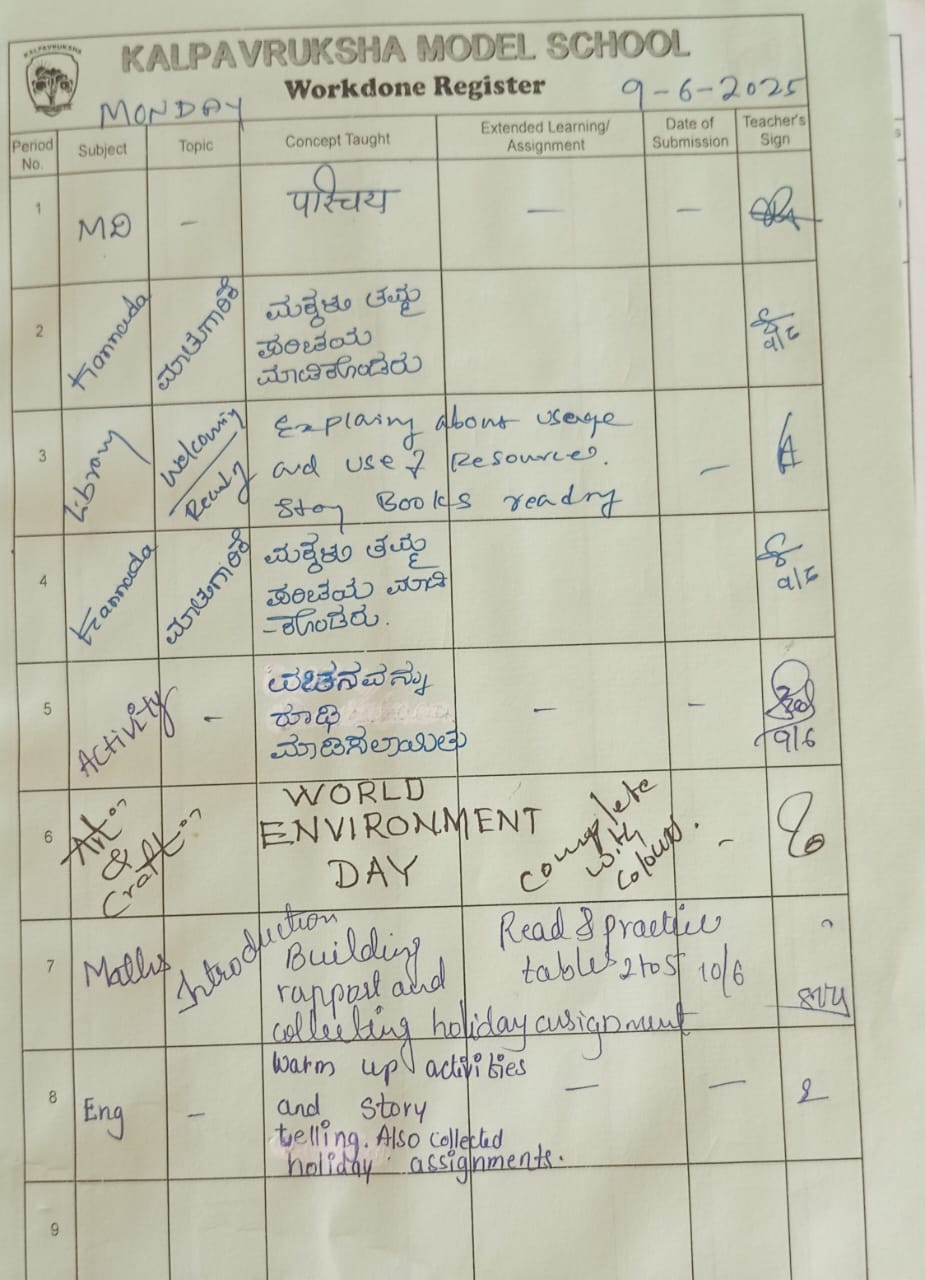 KALPAVRUKSHA
KALPAVRUKSHA MODEL SCHOOL
Workdone Register
MONDAY 9-6-2025
Period No. Subject Topic Concept Taught Extended Learning/ Assignment Date of Submission Teacher's Sign
1 MD - परिचय - -
2 Kannada ಮಾತುಗಾರಿಕೆ ಮಕ್ಕಳು ತಮ್ಮ
ಪರಿಚಯ
ಮಾಡಿಕೊಂಡರು
9/6
3 Library Welcoming Explaing about usage
Reading and use of Resources. -
Story Books reading
4 Kannada ಮಾತುಗಾರಿಕೆ ಮಕ್ಕಳು ತಮ್ಮ
ಪರಿಚಯ ಮಾಡಿ 9/6
-ಕೊಂಡರು.
5 Activity - ವಚನವನ್ನು - -
ರೂಢಿ
ಮಾಡಿಸಲಾಯಿತು 9/6
6 Art & Craft WORLD
ENVIRONMENT
DAY
complete
with
colours. -
7 Maths Introduction Building
rapport and
collecting holiday assignment
Read & practice
tables 2 to 5 10/6
8 Eng - Warm up activities - -
and story
telling. Also collected
holiday assignments.
9